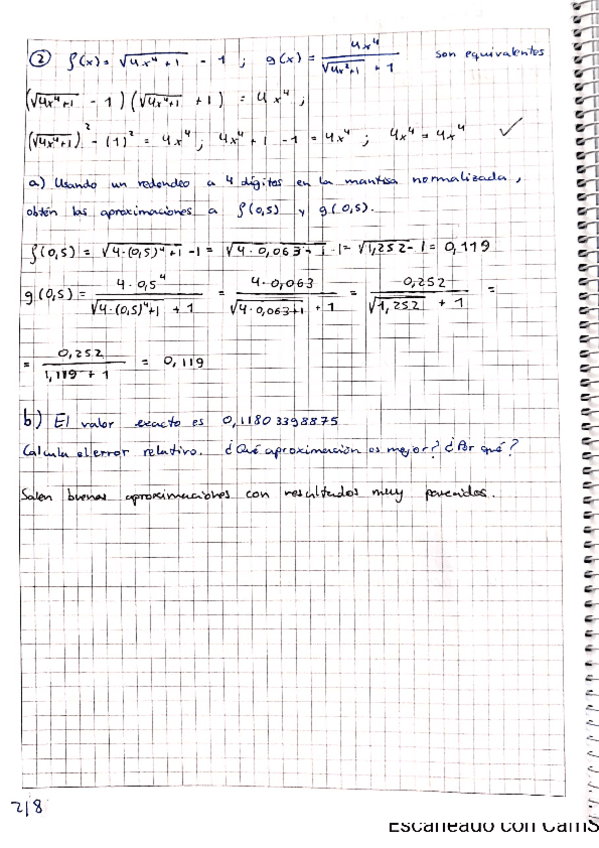 ② f(x) = √(4x⁴+1) - 1 ; g(x) = 4x⁴ / (√(4x²+1) + 1) son equivalentes
(√(4x⁴+1) - 1)(√(4x⁴+1) + 1) = 4x⁴ ;
(√(4x⁴+1))² - (1)² = 4x⁴ ; 4x⁴ + 1 - 1 = 4x⁴ ; 4x⁴ = 4x⁴ ✓
a) Usando un redondeo a 4 dígitos en la mantisa normalizada,
obtén las aproximaciones a f(0,5) y g(0,5).
f(0,5) = √(4·(0,5)⁴+1) - 1 = √(4·0,063+1) - 1 = √(1,252) - 1 = 0,119
g(0,5) = 4·0,5⁴ / (√(4·(0,5)⁴+1) + 1) = 4·0,063 / (√(4·0,063+1) + 1) = 0,252 / (√(1,252) + 1) =
= 0,252 / (1,119 + 1) = 0,119
b) El valor exacto es 0,11803398875
Calcula el error relativo. ¿Qué aproximación es mejor? ¿Por qué?
Salen buenas aproximaciones con resultados muy parecidos.
2/8
Escaneado con CamS